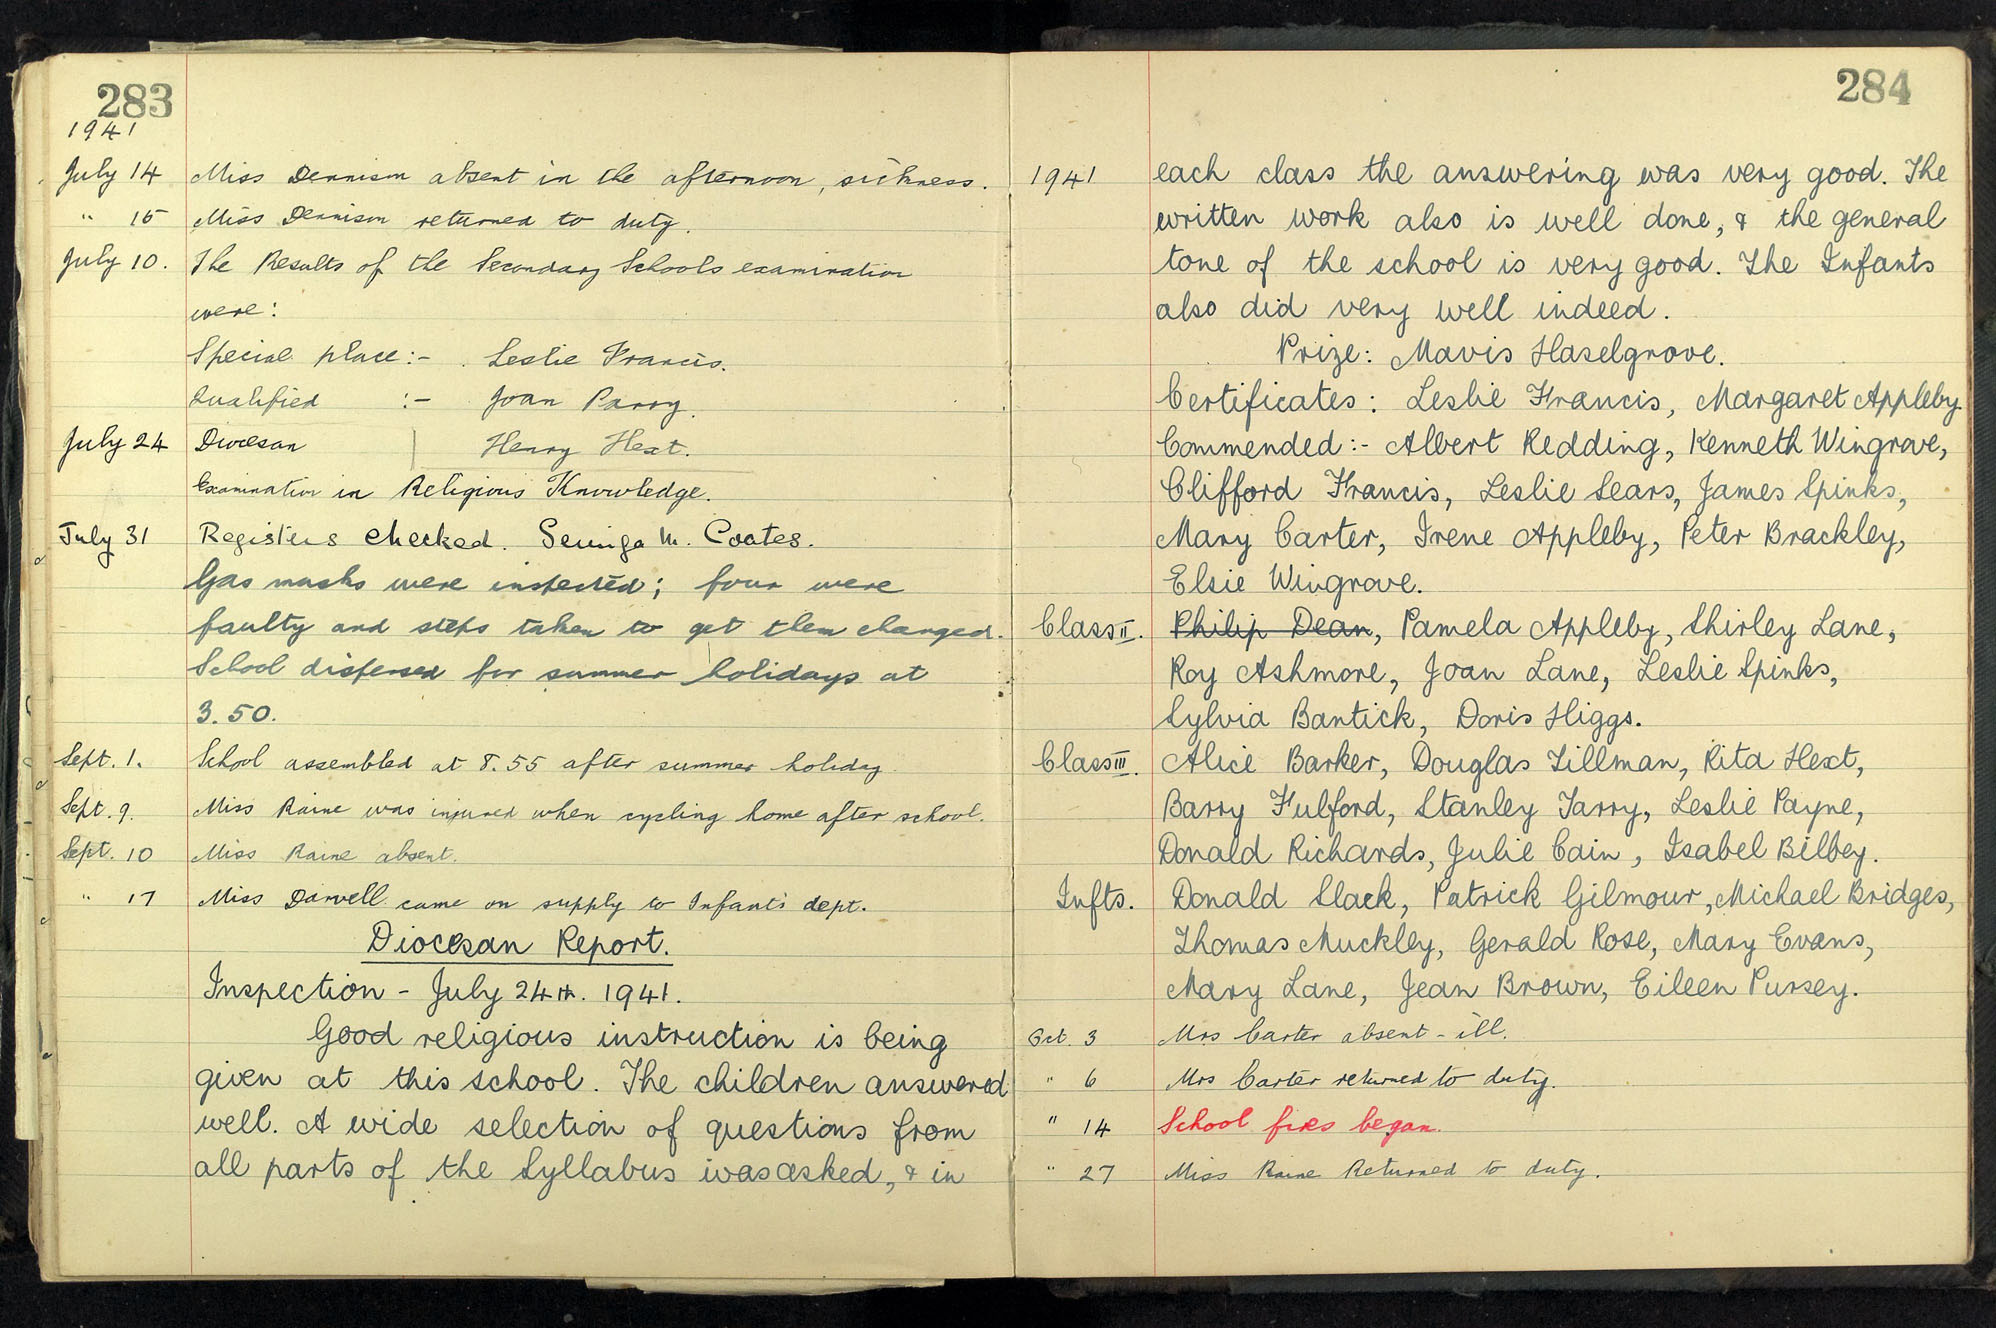 283
1941
July 14 Miss Dennison absent in the afternoon, sickness.
" 15 Miss Dennison returned to duty.
July 10. The Results of the Secondary Schools examination
were:
Special place:- Leslie Francis.
Qualified :- Joan Parry.
July 24 Diocesan Henry Hext.
Examination in Religious Knowledge.
July 31 Registers checked. M. Coates.
Gas masks were inspected; four were
faulty and steps taken to get them changed.
School dispersed for summer holidays at
3.50.
Sept. 1. School assembled at 8.55 after summer holiday.
Sept. 9. Miss Raine was injured when cycling home after school.
Sept. 10 Miss Raine absent.
" 17 Miss Darvell came on supply to Infants dept.
Diocesan Report.
Inspection - July 24th. 1941.
Good religious instruction is being
given at this school. The children answered
well. A wide selection of questions from
all parts of the Syllabus was asked, & in
284
1941 each class the answering was very good. The
written work also is well done, & the general
tone of the school is very good. The Infants
also did very well indeed.
Prize: Mavis Haselgrove.
Certificates: Leslie Francis, Margaret Appleby
Commended:- Albert Redding, Kenneth Wingrove,
Clifford Francis, Leslie Sears, James Spinks,
Mary Carter, Irene Appleby, Peter Brackley,
Elsie Wingrove.
Class II. Philip Dean, Pamela Appleby, Shirley Lane,
Roy Ashmore, Joan Lane, Leslie Spinks,
Sylvia Bantick, Doris Higgs.
Class III. Alice Barker, Douglas Tillman, Rita Hext,
Barry Fulford, Stanley Tarry, Leslie Payne,
Donald Richards, Julie Cain, Isabel Bilbey.
Infts. Donald Slack, Patrick Gilmour, Michael Bridges,
Thomas Muckley, Gerald Rose, Mary Evans,
Mary Lane, Jean Brown, Eileen Pursey.
Oct. 3 Mrs Carter absent - ill.
" 6 Mrs Carter returned to duty.
" 14 School fires began.
" 27 Miss Raine Returned to duty.